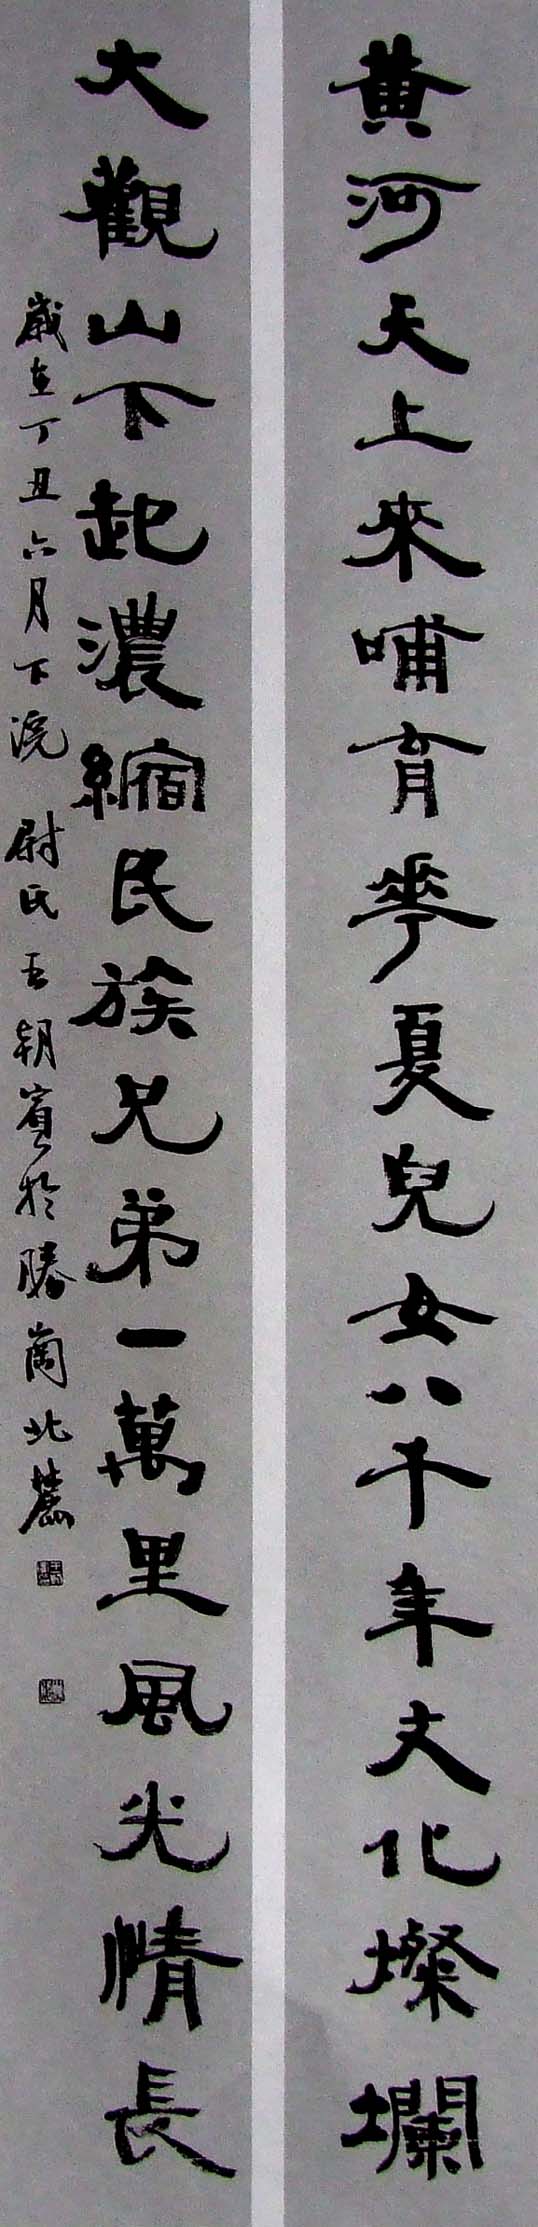 黃河天上來哺育華夏兒女八千年文化燦爛
大觀山下起濃縮民族兄弟一萬里風光情長
歲在丁丑六月下浣 尉氏王朝賓於勝岗北麓